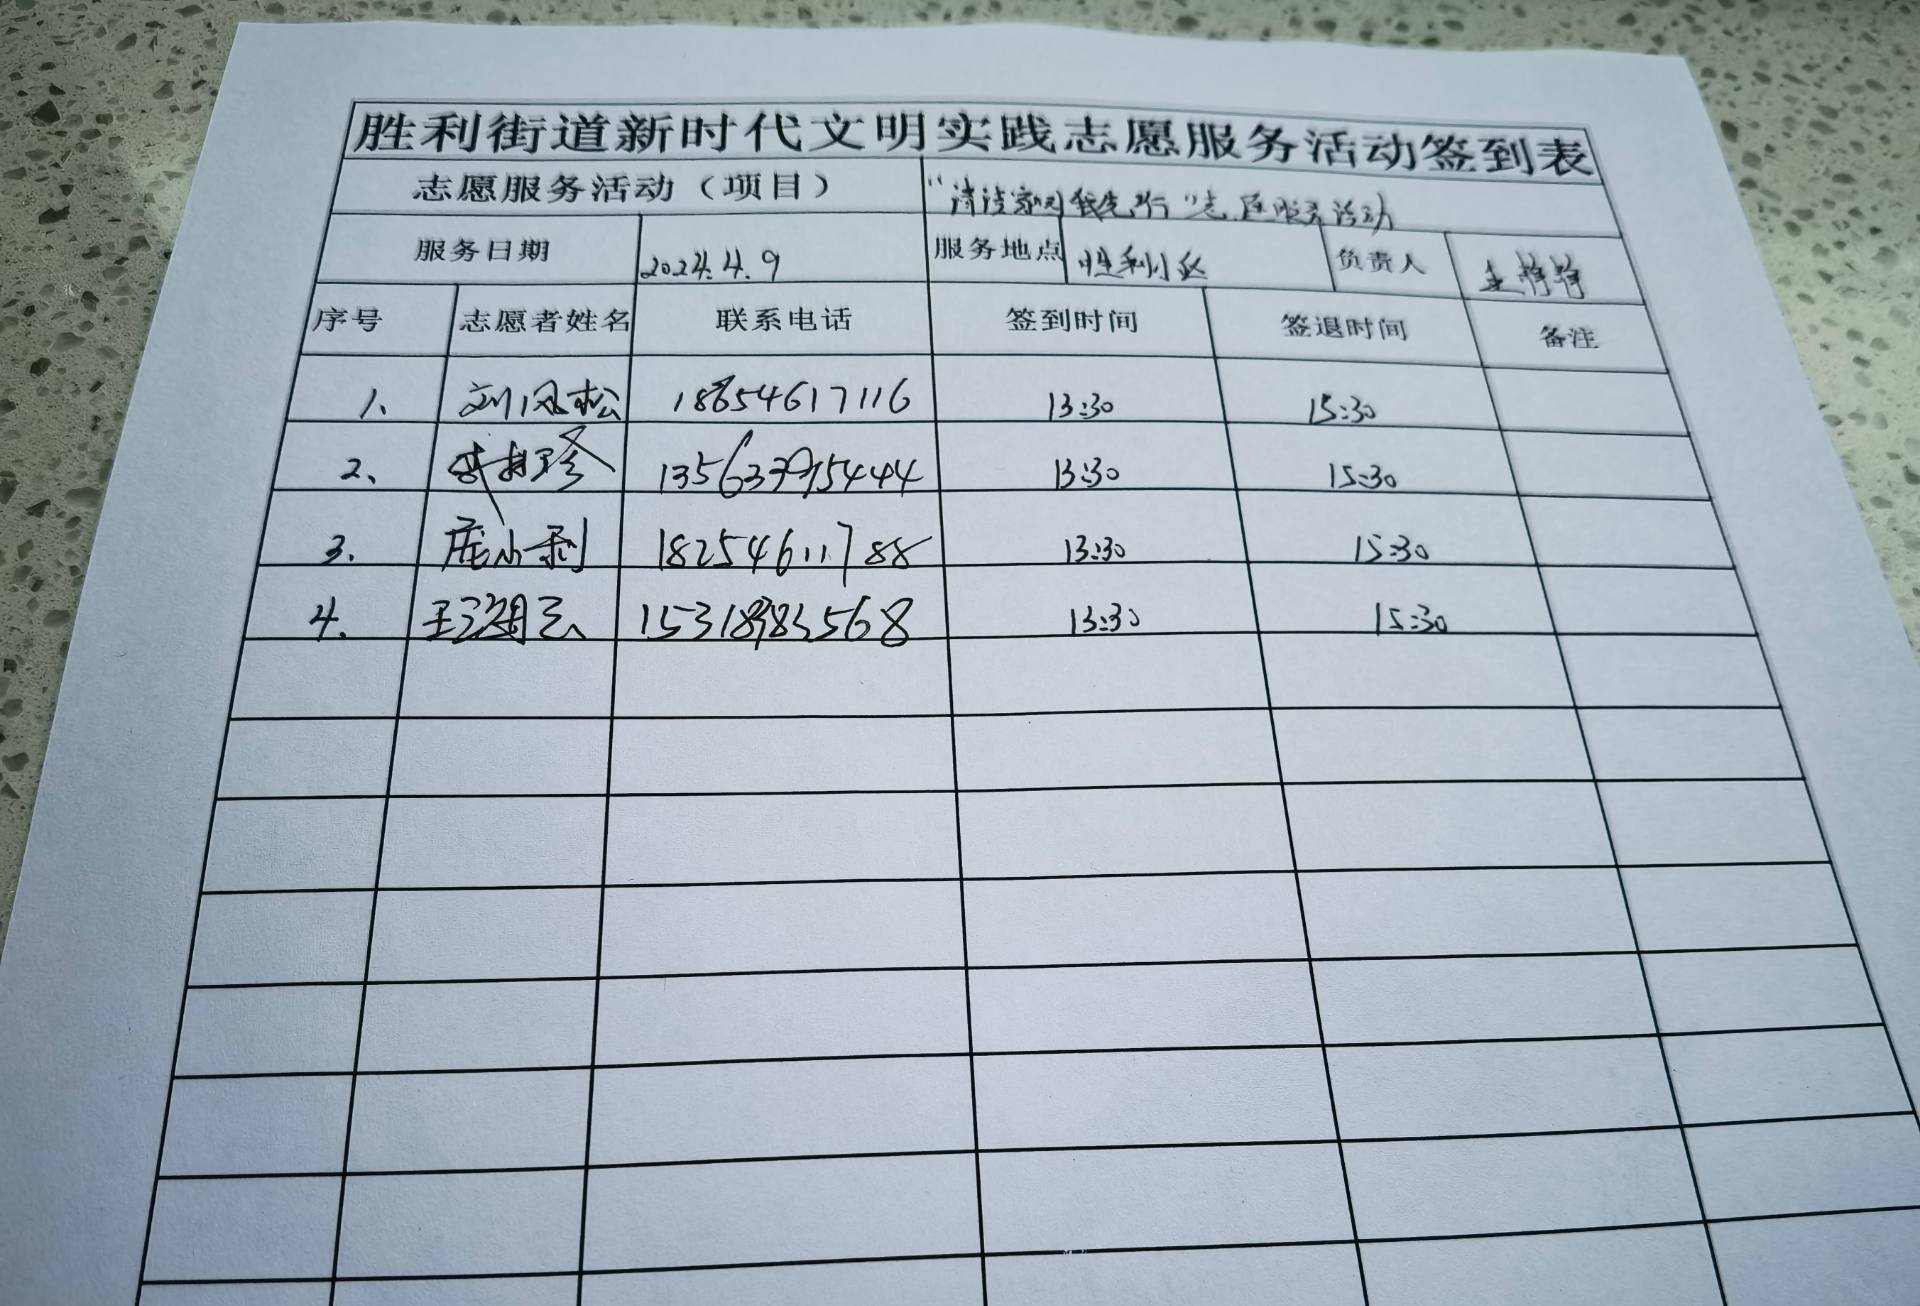 胜利街道新时代文明实践志愿服务活动签到表
志愿服务活动（项目） "清洁家园我先行"志愿服务活动
服务日期 2024.4.9 服务地点 胜利小区 负责人 王静静
序号 志愿者姓名 联系电话 签到时间 签退时间 备注
1、 刘凤松 18654617116 13:30 15:30
2、 13:30 15:30
3. 庞小利 18254611788 13:30 15:30
4. 13:30 15:30